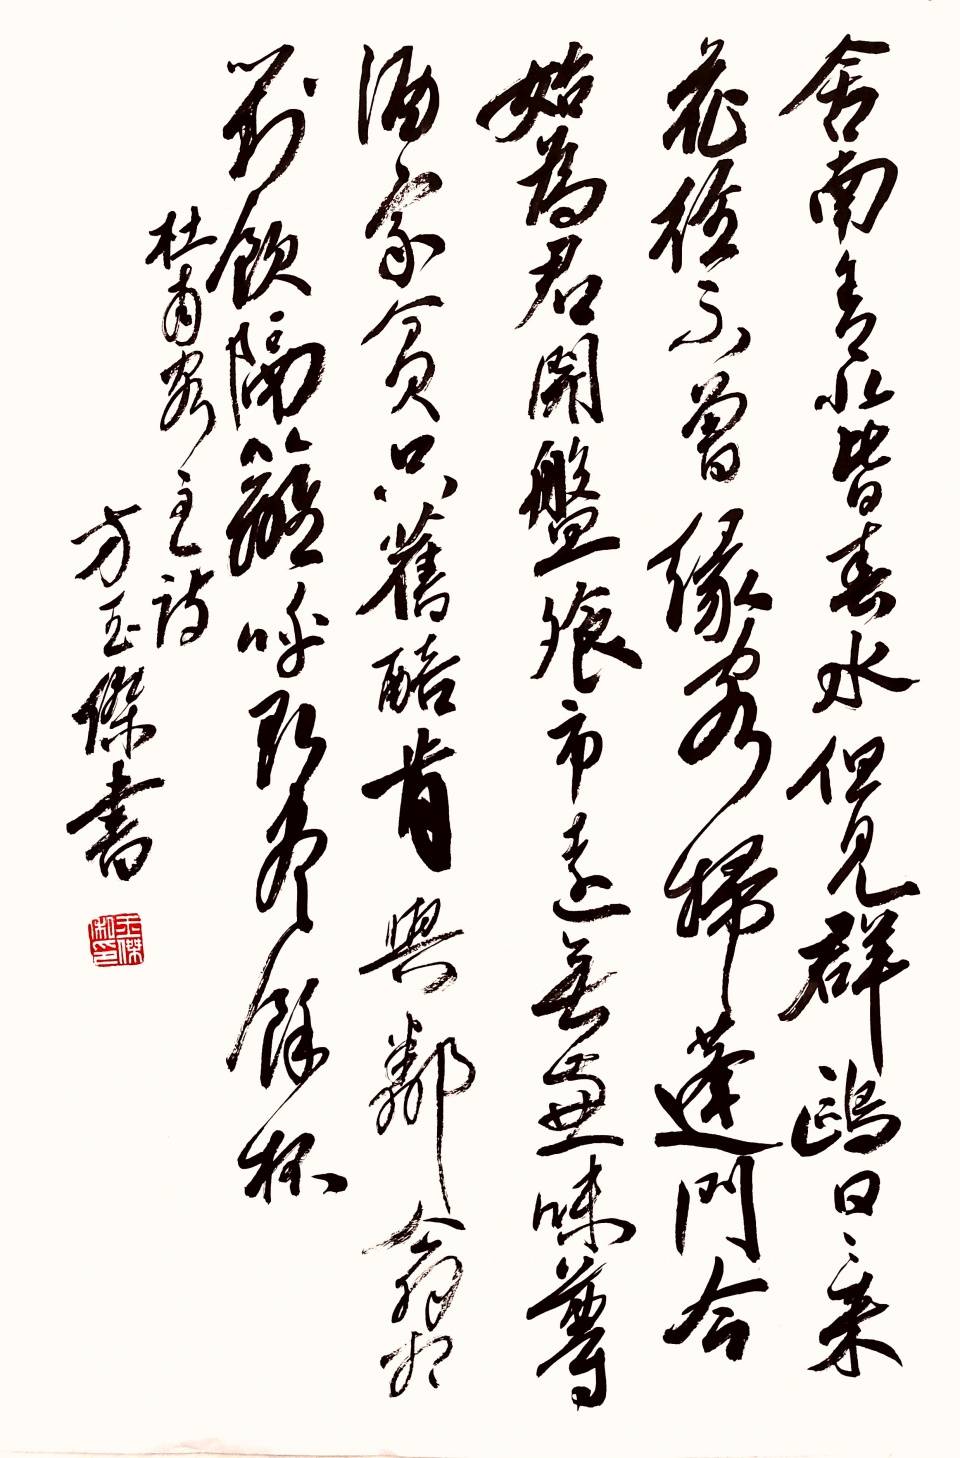 舍南舍北皆春水但見群鷗日〻来
花徑不曾緣客掃蓬門今
始為君開盤飱市遠無兼味尊
酒家貧只舊醅肯與鄰翁相
對飲隔籬呼取盡餘杯
杜甫客至詩
方玉傑書
玉傑私印